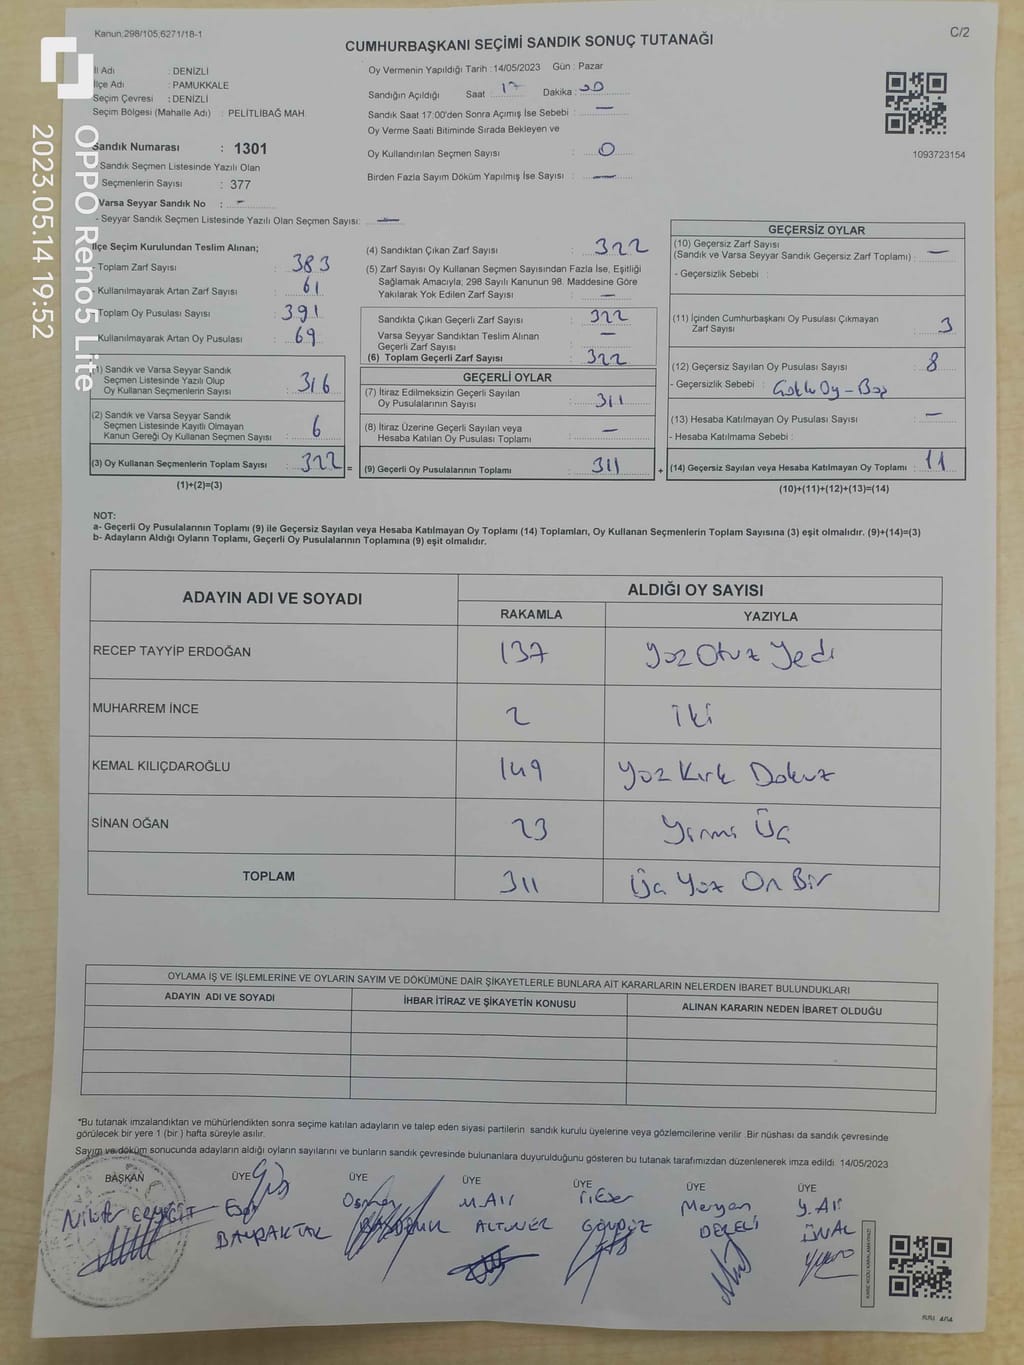 Kanun.298/105,6271/18-1
C/2
CUMHURBAŞKANI SEÇİMİ SANDIK SONUÇ TUTANAĞI
İl Adı : DENİZLİ
İlçe Adı : PAMUKKALE
Seçim Çevresi : DENİZLİ
Seçim Bölgesi (Mahalle Adı) : PELİTLİBAĞ MAH.
Sandık Numarası : 1301
Sandık Seçmen Listesinde Yazılı Olan
Seçmenlerin Sayısı : 377
Varsa Seyyar Sandık No : -
- Seyyar Sandık Seçmen Listesinde Yazılı Olan Seçmen Sayısı: —
Oy Vermenin Yapıldığı Tarih : 14/05/2023 Gün : Pazar
Sandığın Açıldığı Saat : 17 Dakika : 00
Sandık Saat 17:00'den Sonra Açımış İse Sebebi : —
Oy Verme Saati Bitiminde Sırada Bekleyen ve
Oy Kullandırılan Seçmen Sayısı : 0
Birden Fazla Sayım Döküm Yapılmış İse Sayısı : —
1093723154
İlçe Seçim Kurulundan Teslim Alınan;
- Toplam Zarf Sayısı : 383
- Kullanılmayarak Artan Zarf Sayısı : 61
- Toplam Oy Pusulası Sayısı : 391
- Kullanılmayarak Artan Oy Pusulası : 69
(1) Sandık ve Varsa Seyyar Sandık
Seçmen Listesinde Yazılı Olup
Oy Kullanan Seçmenlerin Sayısı : 316
(2) Sandık ve Varsa Seyyar Sandık
Seçmen Listesinde Kayıtlı Olmayan
Kanun Gereği Oy Kullanan Seçmen Sayısı : 6
(3) Oy Kullanan Seçmenlerin Toplam Sayısı : 322 =
(1)+(2)=(3)
(4) Sandıktan Çıkan Zarf Sayısı : 322
(5) Zarf Sayısı Oy Kullanan Seçmen Sayısından Fazla İse, Eşitliği
Sağlamak Amacıyla; 298 Sayılı Kanunun 98. Maddesine Göre
Yakılarak Yok Edilen Zarf Sayısı : —
Sandıkta Çıkan Geçerli Zarf Sayısı : 322
Varsa Seyyar Sandıktan Teslim Alınan
Geçerli Zarf Sayısı : —
(6) Toplam Geçerli Zarf Sayısı : 322
GEÇERLİ OYLAR
(7) İtiraz Edilmeksizin Geçerli Sayılan
Oy Pusulalarının Sayısı : 311
(8) İtiraz Üzerine Geçerli Sayılan veya
Hesaba Katılan Oy Pusulası Toplamı : —
(9) Geçerli Oy Pusulalarının Toplamı : 311 +
GEÇERSİZ OYLAR
(10) Geçersiz Zarf Sayısı
(Sandık ve Varsa Seyyar Sandık Geçersiz Zarf Toplamı) : —
- Geçersizlik Sebebi :
(11) İçinden Cumhurbaşkanı Oy Pusulası Çıkmayan
Zarf Sayısı : 3
(12) Geçersiz Sayılan Oy Pusulası Sayısı : 8
- Geçersizlik Sebebi : Oy - Boş
(13) Hesaba Katılmayan Oy Pusulası Sayısı : —
- Hesaba Katılmama Sebebi :
(14) Geçersiz Sayılan veya Hesaba Katılmayan Oy Toplamı : 11
(10)+(11)+(12)+(13)=(14)
NOT:
a- Geçerli Oy Pusulalarının Toplamı (9) ile Geçersiz Sayılan veya Hesaba Katılmayan Oy Toplamı (14) Toplamları, Oy Kullanan Seçmenlerin Toplam Sayısına (3) eşit olmalıdır. (9)+(14)=(3)
b- Adayların Aldığı Oyların Toplamı, Geçerli Oy Pusulalarının Toplamına (9) eşit olmalıdır.
ADAYIN ADI VE SOYADI
ALDIĞI OY SAYISI
RAKAMLA YAZIYLA
RECEP TAYYİP ERDOĞAN 137 Yüz Otuz Yedi
MUHARREM İNCE 2 İki
KEMAL KILIÇDAROĞLU 149 Yüz Kırk Dokuz
SİNAN OĞAN 23 Yirmi Üç
TOPLAM 311 Üç Yüz On Bir
OYLAMA İŞ VE İŞLEMLERİNE VE OYLARIN SAYIM VE DÖKÜMÜNE DAİR ŞİKAYETLERLE BUNLARA AİT KARARLARIN NELERDEN İBARET BULUNDUKLARI
ADAYIN ADI VE SOYADI İHBAR İTİRAZ VE ŞİKAYETİN KONUSU ALINAN KARARIN NEDEN İBARET OLDUĞU
*Bu tutanak imzalandıktan ve mühürlendikten sonra seçime katılan adayların ve talep eden siyasi partilerin sandık kurulu üyelerine veya gözlemcilerine verilir. Bir nüshası da sandık çevresinde
görülecek bir yere 1 (bir ) hafta süreyle asılır.
Sayım ve döküm sonucunda adayların aldığı oyların sayılarını ve bunların sandık çevresinde bulunanlara duyurulduğunu gösteren bu tutanak tarafımızdan düzenlenerek imza edildi. 14/05/2023
BAŞKAN ÜYE ÜYE ÜYE ÜYE ÜYE ÜYE
Nilüfer
BAYRAKTAR
M. Ali ALTINER
GÜNDÜZ
Meryem DERELİ
Y. Ali ÜNAL
OPPO Reno5 Lite
2023.05.14 19:52